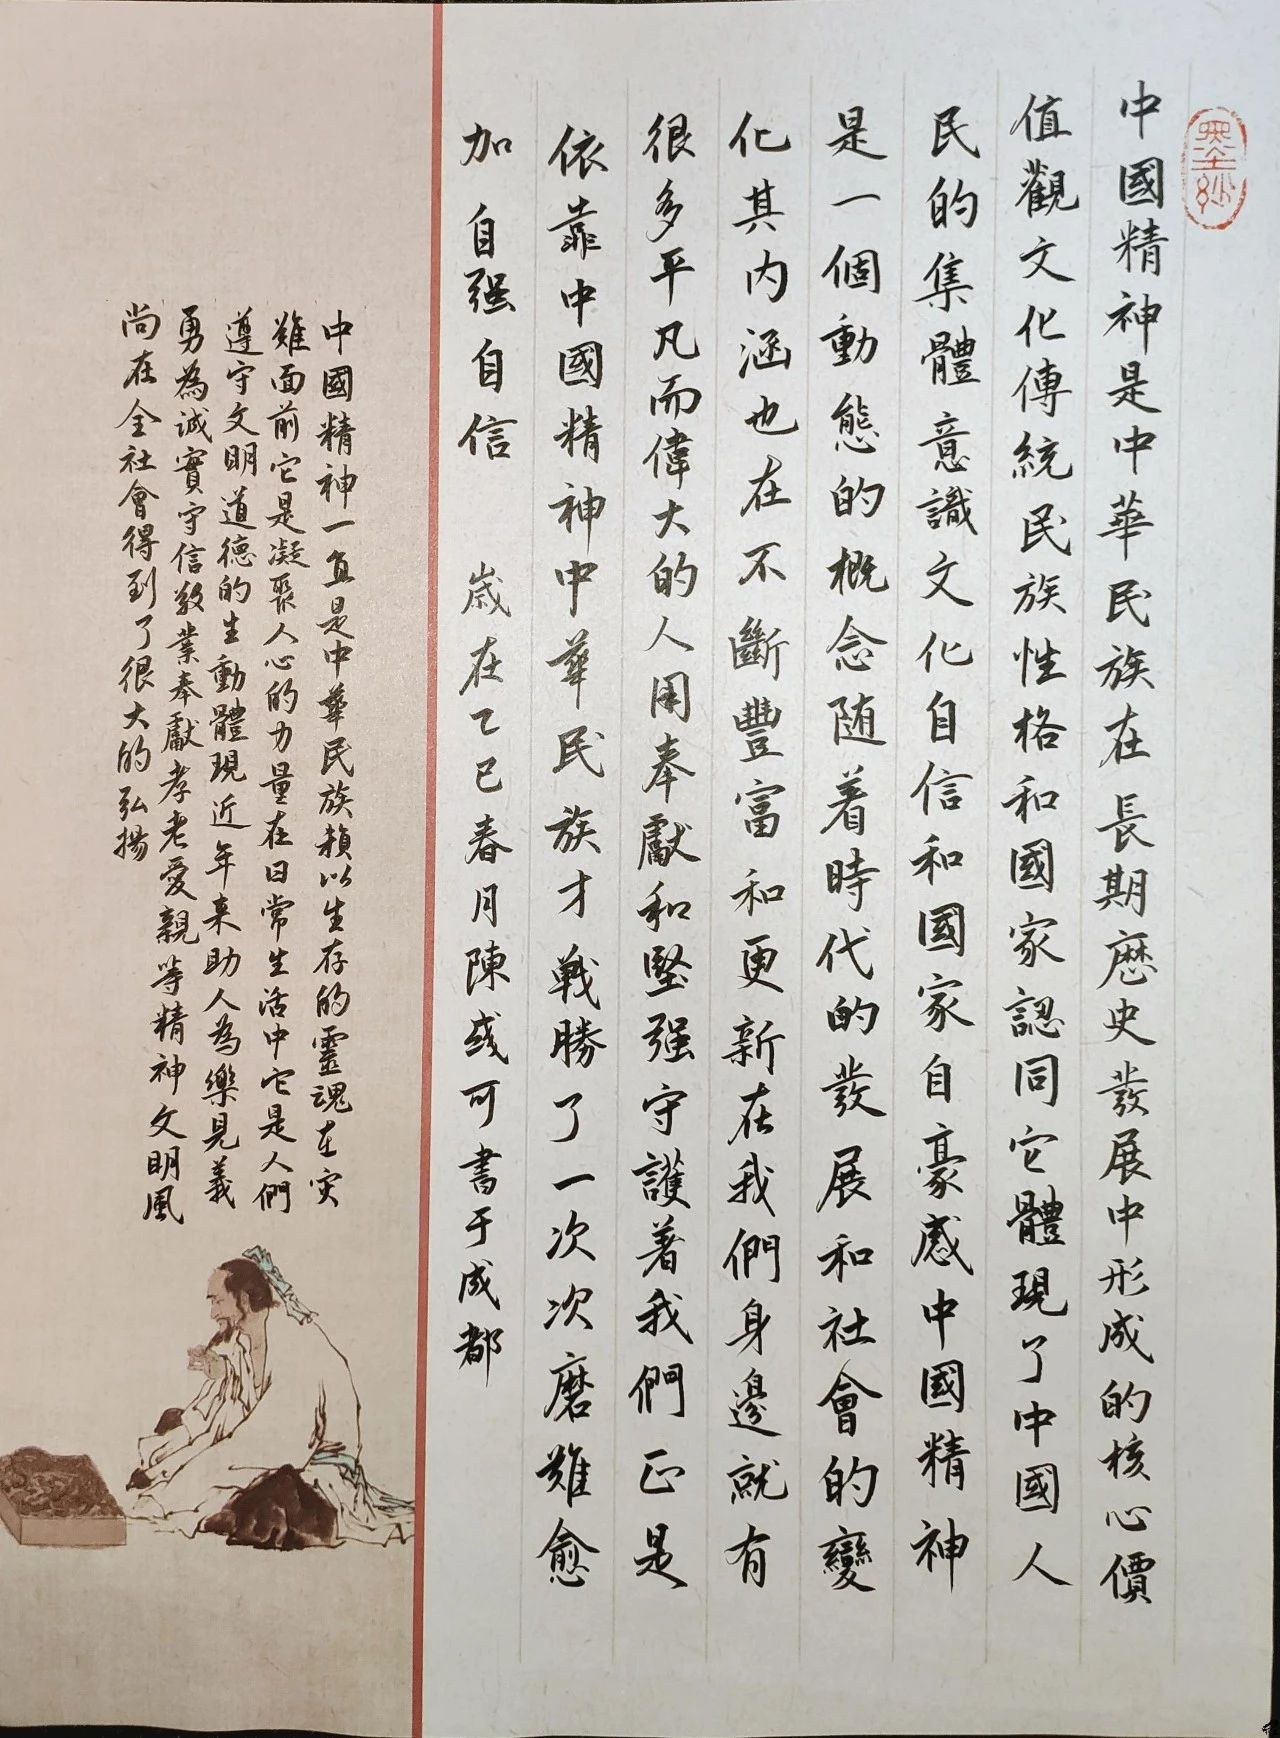 墨妙
中國精神是中華民族在長期歷史發展中形成的核心價
值觀文化傳統民族性格和國家認同它體現了中國人
民的集體意識文化自信和國家自豪感中國精神
是一個動態的概念随着時代的發展和社會的變
化其内涵也在不斷豐富和更新在我們身邊就有
很多平凡而偉大的人用奉獻和堅强守護著我們正是
依靠中國精神中華民族才戰勝了一次次磨難愈
加自强自信 歲在乙巳春月陳彧可書于成都
中國精神一直是中華民族賴以生存的靈魂在灾
難面前它是凝聚人心的力量在日常生活中它是人們
遵守文明道德的生動體現近年来助人為樂見義
勇為誠實守信敬業奉獻孝老愛親等精神文明風
尚在全社會得到了很大的弘揚